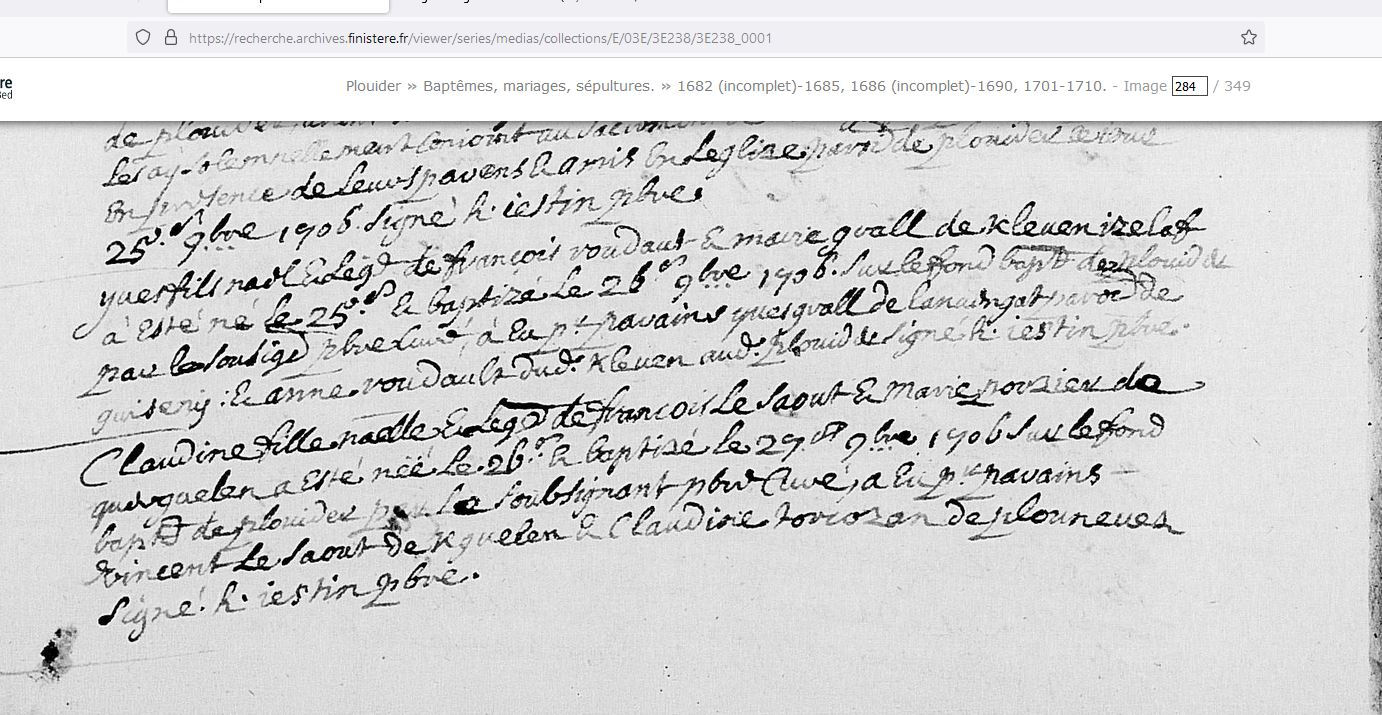 re
Bed
https://recherche.archives.finistere.fr/viewer/series/medias/collections/E/03E/3E238/3E238_0001
Plouider » Baptêmes, mariages, sépultures. » 1682 (incomplet)-1685, 1686 (incomplet)-1690, 1701-1710. - Image 284 / 349
de plouider
les ay solemnellement conioint au sacrement de plouider ce iour
En presence de leurs parens & amis En Leglize parod de plouider ce iour
25e 9bre 1706 signé h. iestin pbre
yves fils naēl & Leg de françois roudaut & marie gvall de Kleven izelaf
à Esté né le 25e & baptizé Le 26e 9bre 1706. sur le fond bapt de plouider
par le sousigé pbre Curé, à Eu pr parains yves gvall de lanvengat parod de
guiseny: & anne roudault dud. Kleven aud. plouider signé h. iestin pbre.
Claudine fille naelle & Leg de francois Le saout & Marie
querguelen a Esté néé Le 26e & baptizé le 27e 9bre 1706 sur le fond
bapt de plouider par Le soubsignant pbre Curé, a Eu pr parains
vincent Le saout de Kguelen & Claudine de plounevez
signé h. iestin pbre.